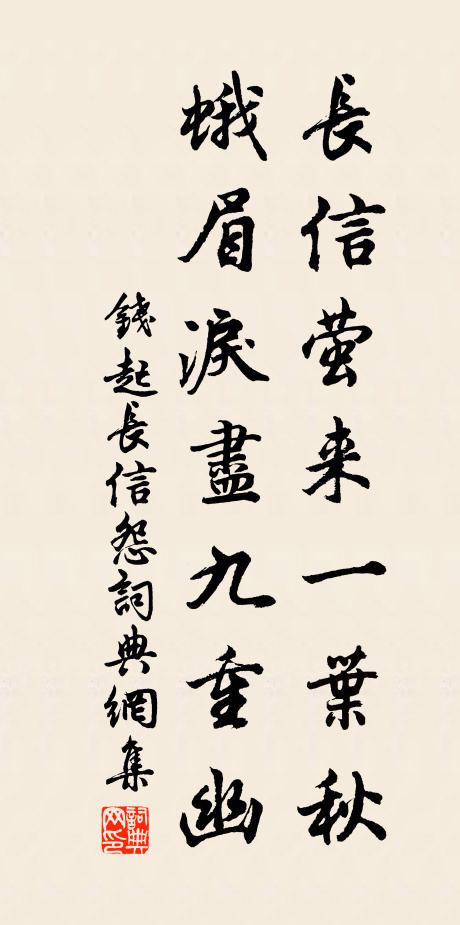 長信萤来一葉秋
蛾眉淚盡九重幽
錢起長信怨詞典網集
詞典网印